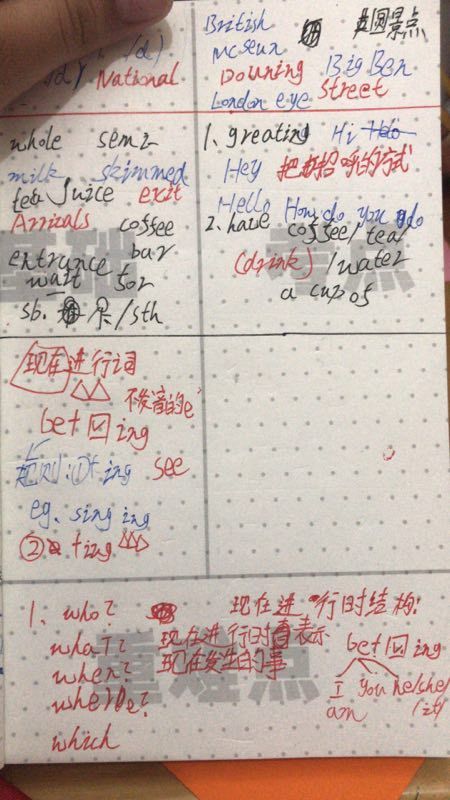 National
British
Museun
圆景点
Downing Big Ben
London eye street
whole semi
milk skimmed
tea juice exit
Arrizals coffee
entrance bar
wait for
sb. /sth
基础
1. greating Hi
Hey 把打招呼的方式
Hello How do you do
2. have coffee/tea/
(drink) /water
a cup of
考点
现在进行词
不发音的e
be+ 回 ing
规则:①+ing see
eg. singing
② +ing
1. who?
what?
when?
where?
which
现在进行时结构:
现在进行时 表示
现在发生的事
be+ 回 ing
I you he/she
am /it/
重难点